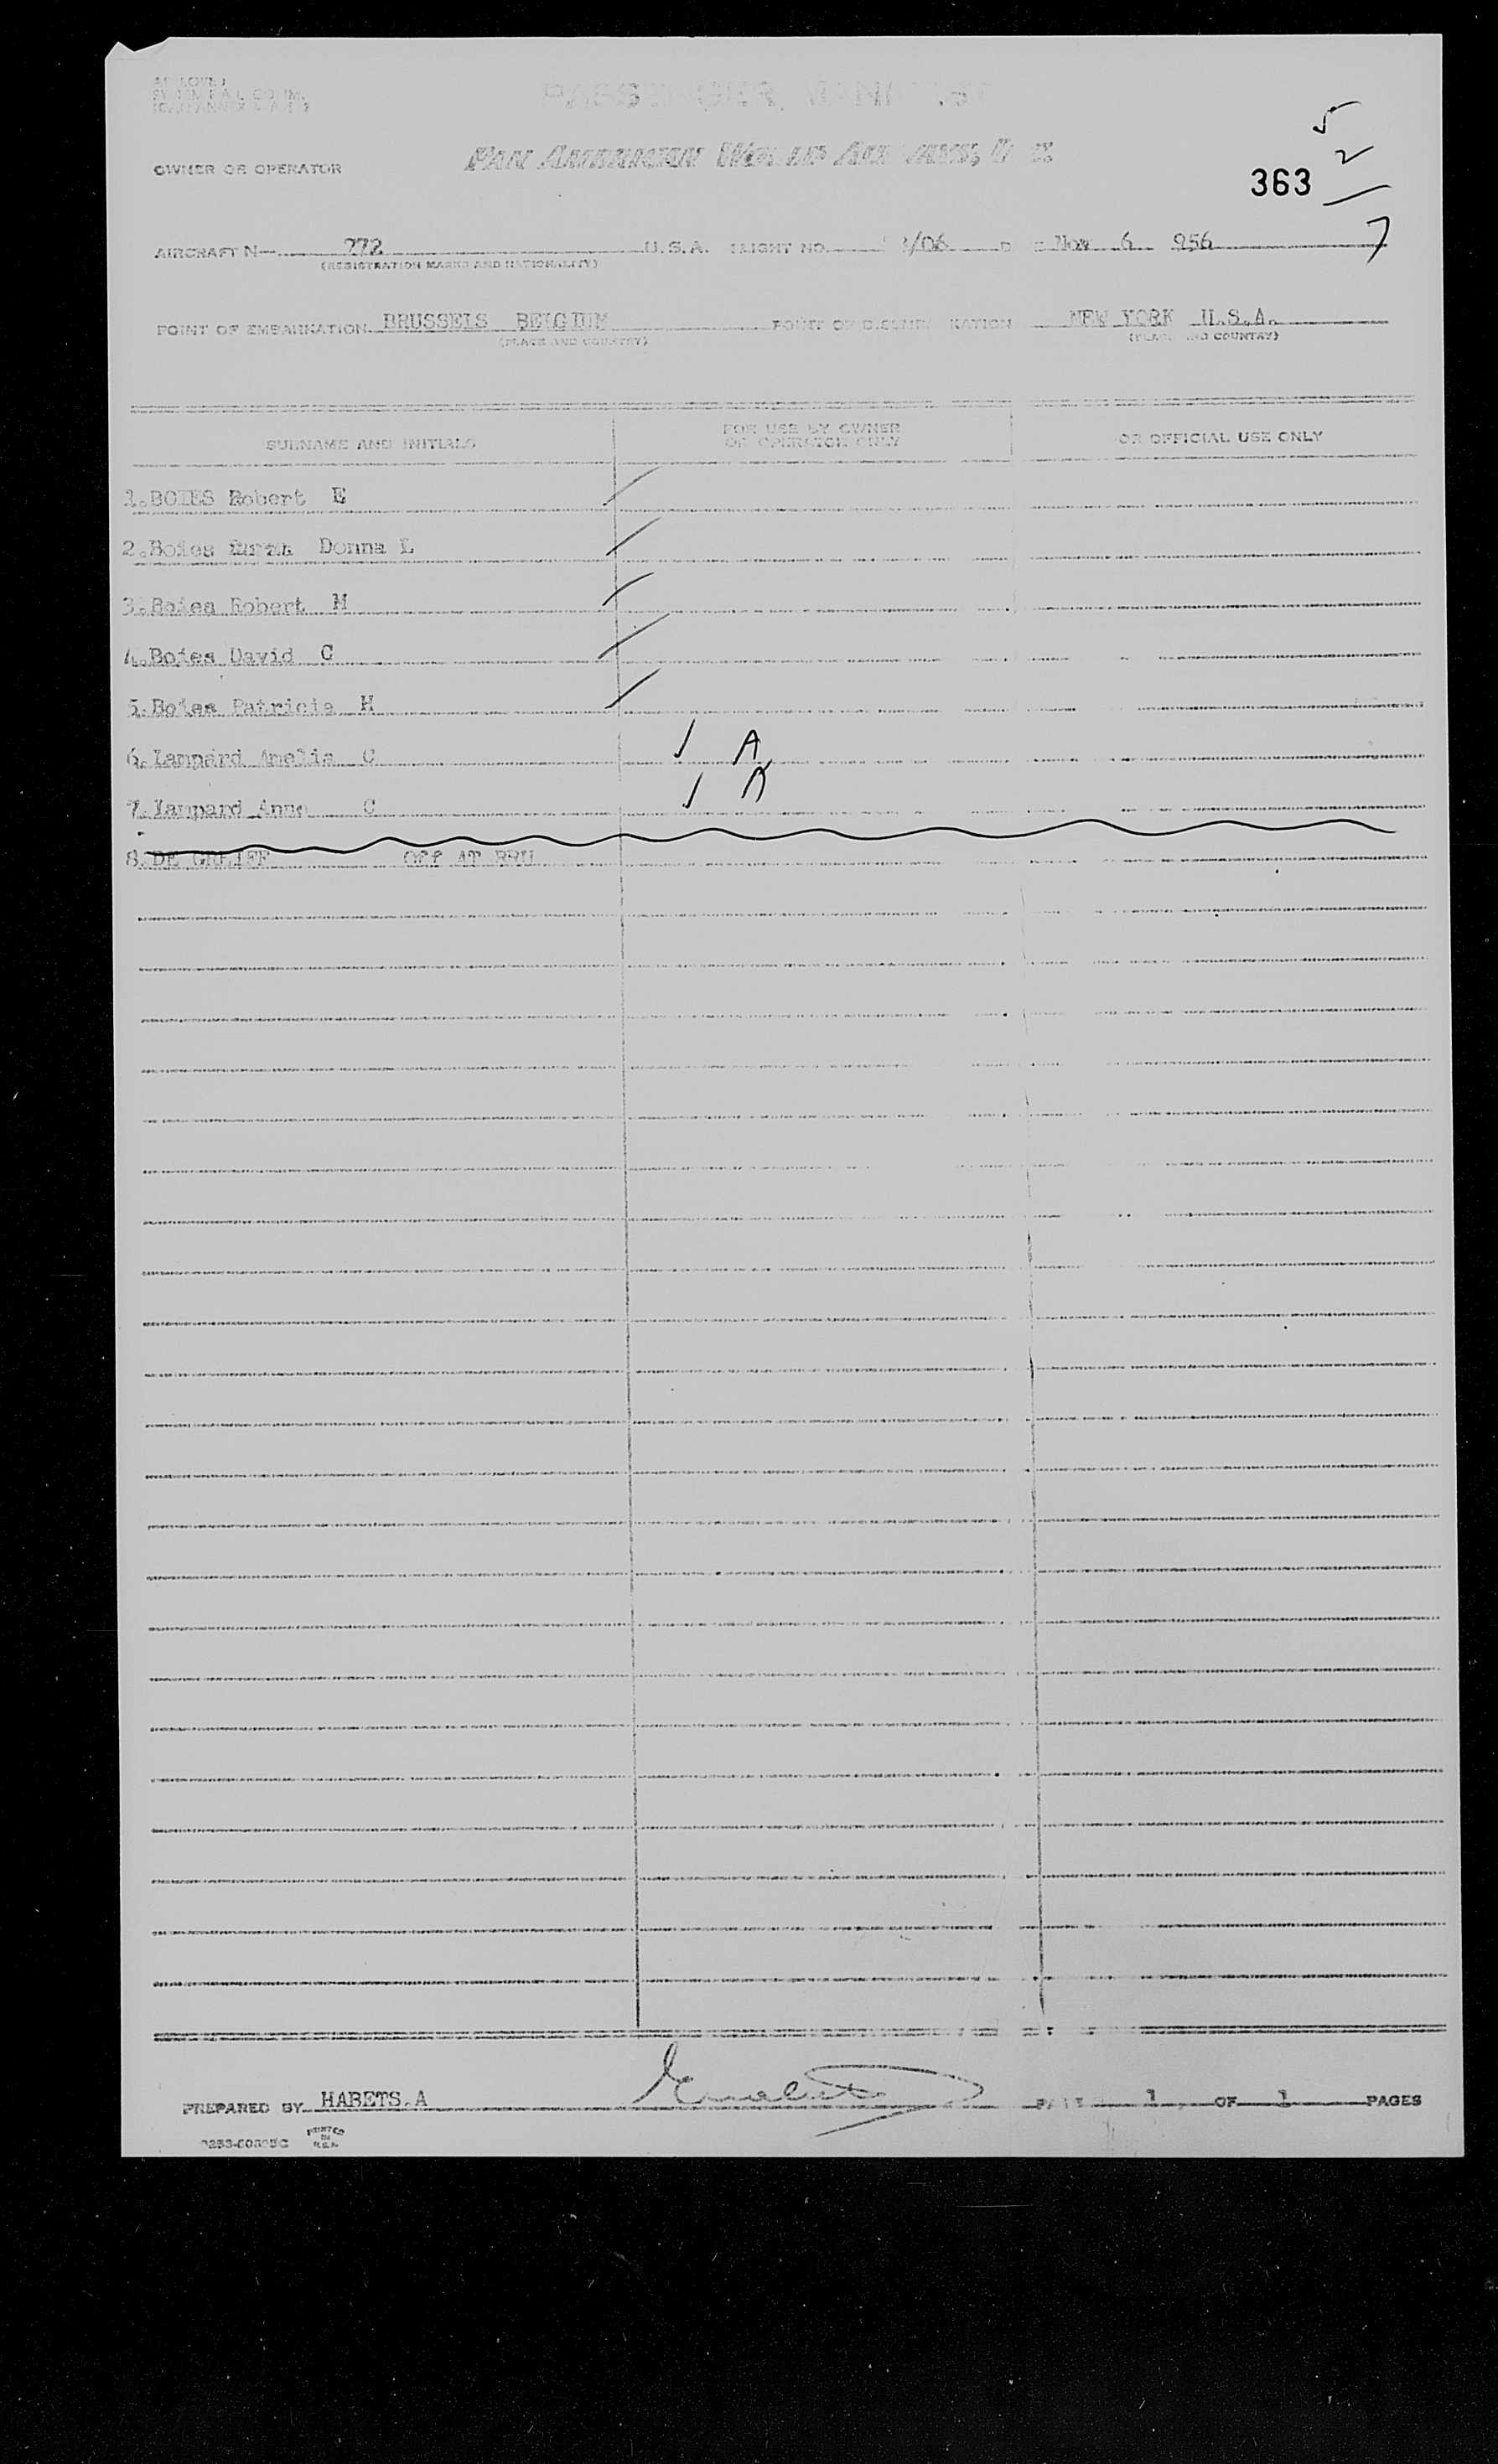 PASSENGER MANIFEST
5
2
OWNER OR OPERATOR PAN AMERICAN WORLD AIRWAYS,
363
7
AIRCRAFT N— 772 U.S.A. FLIGHT NO. /06 Nov 6 956
(REGISTRATION MARKS AND NATIONALITY)
POINT OF EMBARKATION BRUSSELS BELGIUM POINT OF DISEMBARKATION NEW YORK U.S.A.
(PLACE AND COUNTRY) (PLACE AND COUNTRY)
SURNAME AND INITIALS FOR USE BY OWNER OR OFFICIAL USE ONLY
OR OPERATOR ONLY
1.BOIES Robert E
2.Boies Donna L
3.Boies Robert M
4.Boies David C
5.Boies Patricia H
6.Lampard Amelia C A
7.Lampard Anne C A
8.DE GREIFF Off AT BRU
PREPARED BY HABETS.A PAGE 1 OF 1 PAGES
PRINTED
IN
U.S.A.